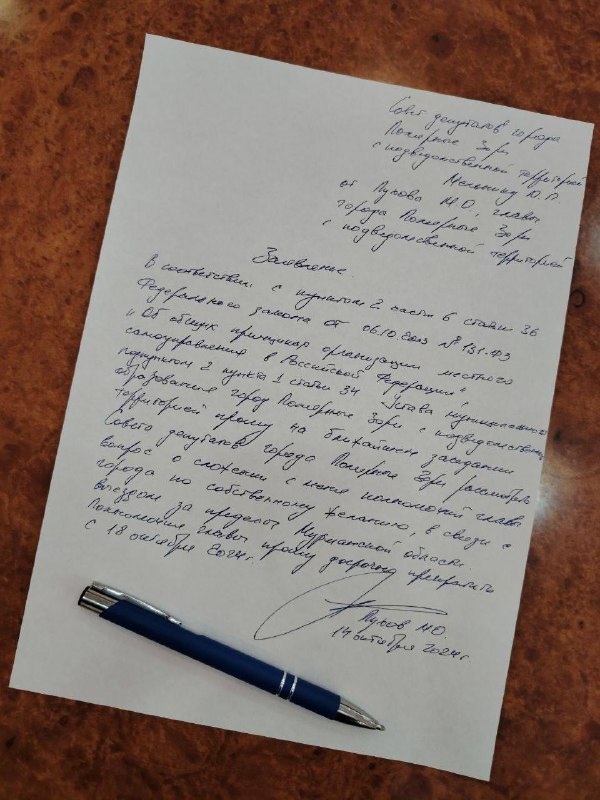 Совет депутатов города
Полярные Зори
с подведомственной территорией
Мельнику Ю.П.
от Пухова М.О., главы
города Полярные Зори
с подведомственной территорией
Заявление.
В соответствии с пунктом 2 части 6 статьи 36
Федерального закона от 06.10.2003 № 131-ФЗ
"Об общих принципах организации местного
самоуправления в Российской Федерации",
подпунктом 2 пункта 1 статьи 34 Устава муниципального
образования город Полярные Зори с подведомственной
территорией прошу на ближайшем заседании
Совета депутатов города Полярные Зори рассмотреть
вопрос о сложении с меня полномочий главы
города по собственному желанию, в связи с
выездом за пределы Мурманской области.
Полномочия главы прошу досрочно прекратить
с 18 октября 2024г.
Пухов М.О.
14 октября 2024г